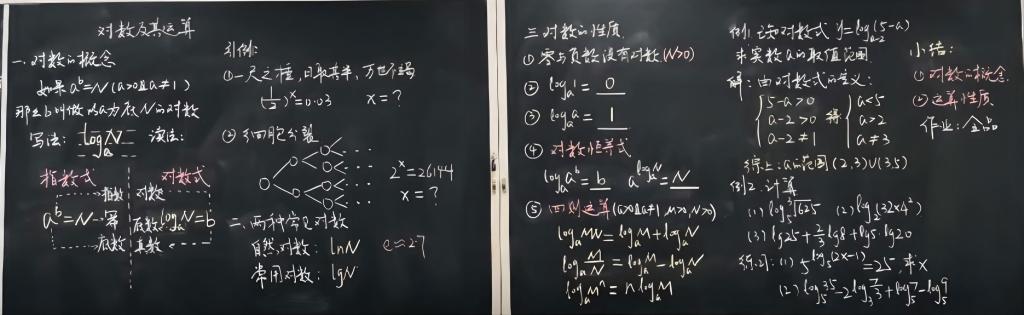 对数及其运算
一.对数的概念
如果 a^b=N (a>0且a≠1)
那么b叫做以a为底N的对数
写法: log_a N 读法:
指数式 对数式
指数 对数
a^b=N 幂 底数 log_a N=b
底数 真数
引例:
①一尺之棰,日取其半,万世不竭
(1/2)^x=0.03 x=?
②细胞分裂
2^x=26144
x=?
二、两种常见对数
自然对数: lnN e≈2.7
常用对数: lgN
三.对数的性质
①零与负数没有对数(N>0)
② log_a 1 = 0
③ log_a a = 1
④ 对数恒等式
log_a a^b = b a^(log_a N) = N
⑤ 四则运算(a>0且a≠1 M>0,N>0)
log_a MN = log_a M + log_a N
log_a M/N = log_a M - log_a N
log_a M^n = n log_a M
例1.已知对数式 y=log_(a-2) (5-a)
求实数a的取值范围.
解:由对数式的意义:
5-a>0 a<5
a-2>0 得 a>2
a-2≠1 a≠3
综上:a的范围(2,3)∪(3,5)
例2.计算
(2) log_2 (32×4²)
(3) lg25+2/3 lg8+lg5·lg20
练习:(1) 5^(log_5 (2x-1))=25,求x
(2) log_5 35-2log_5 7/3+log_5 7-log_5 9
小结:
①对数的概念
②运算性质
作业: